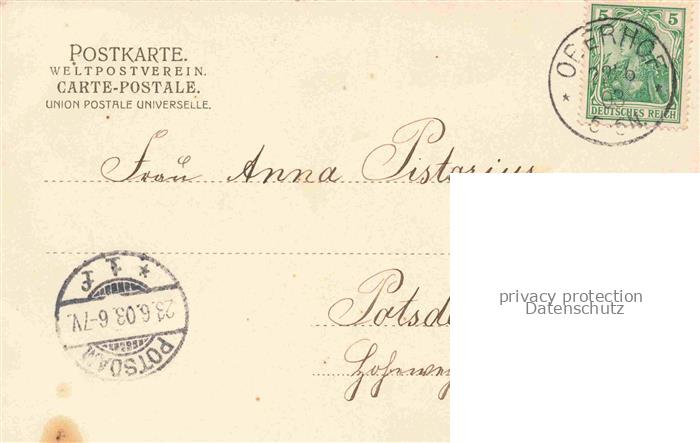 POSTKARTE.
WELTPOSTVEREIN.
CARTE-POSTALE.
UNION POSTALE UNIVERSELLE.
5 5
DEUTSCHES REICH
OBERHOF
03
5-6N.
Frau Anna Pistorius
Potsd
Hohewe
POTSDAM
23.6.03.6-7V.
* 1
privacy protection
Datenschutz